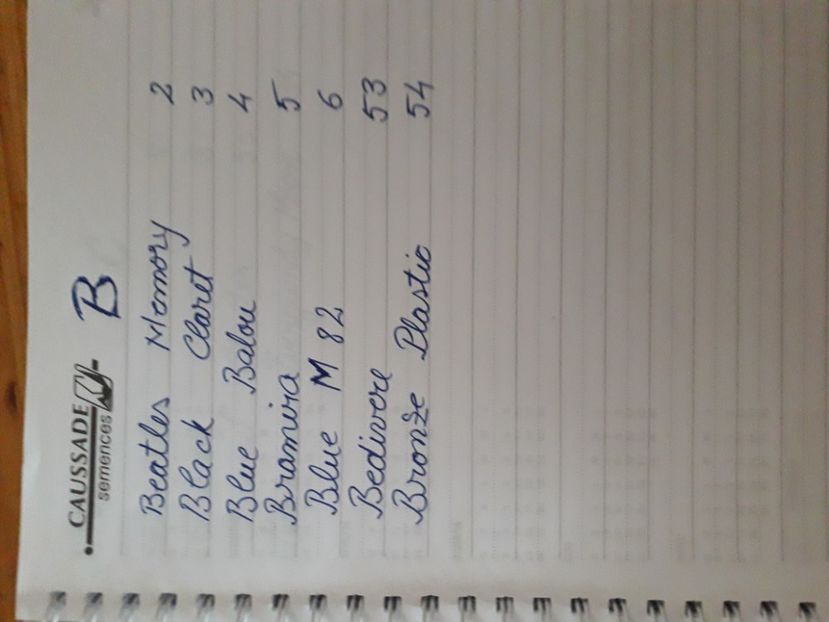 CAUSSADE
semences
B
Beatles Memory 2
Black Claret 3
Blue Balou 4
Bramira 5
Blue M 82 6
Bedivere 53
Bronze Plastic 54